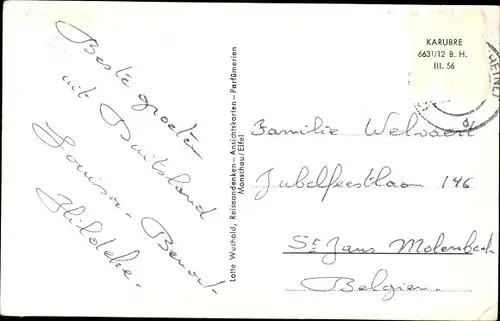 Beste groeten
uit Duitsland
Louisa - Benoit -
Hildeke.
Lotte Wuthold, Reiseandenken – Ansichtskarten – Parfümerien
Monschau/Eifel
KARUBRE
6631/12 B. H.
III. 56
Familie Welvaert
Jubelfeestlaan 146
St Jans Molenbeek
Belgien.